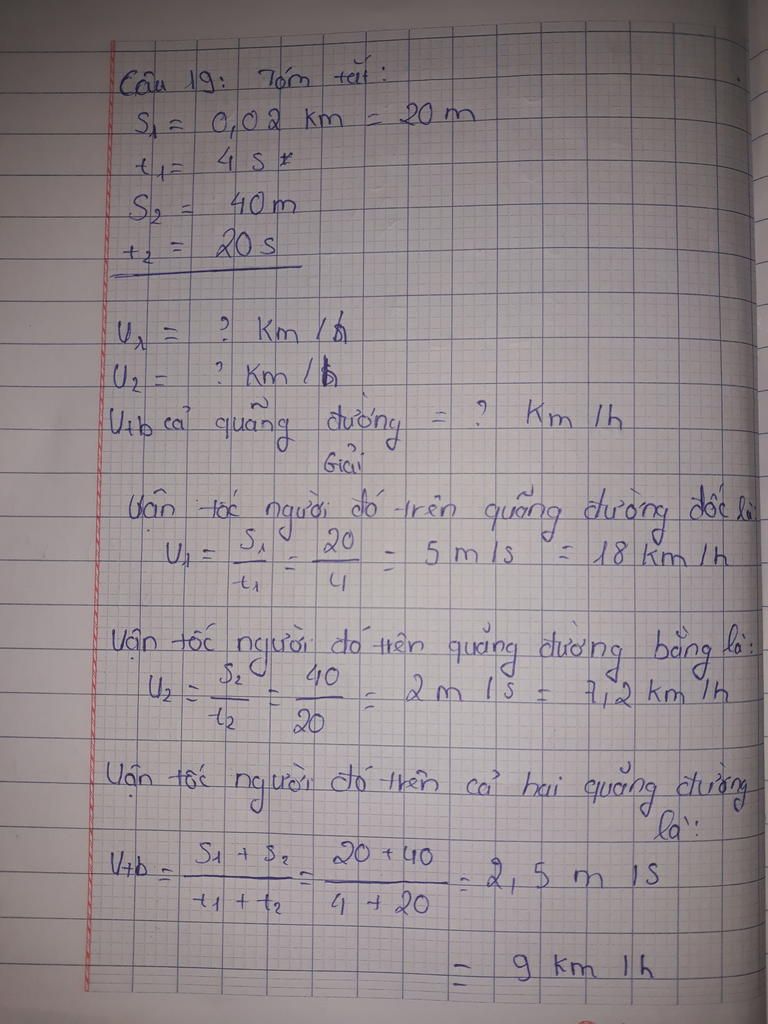 Câu 19: Tóm tắt:
S₁ = 0,02 km = 20 m
t₁ = 4 s
S₂ = 40 m
t₂ = 20 s
V₁ = ? Km / h
V₂ = ? Km / h
Vtb cả quãng đường = ? Km / h
Giải
Vận tốc người đó trên quãng đường dốc là
V₁ = S₁/t₁ = 20/4 = 5 m / s = 18 Km / h
Vận tốc người đó trên quảng đường bằng là:
V₂ = S₂/t₂ = 40/20 = 2 m / s = 7,2 km / h
Vận tốc người đó trên cả hai quảng đường
là:
Vtb = S₁ + S₂/t₁ + t₂ = 20 + 40/4 + 20 = 2,5 m / s
= 9 km / h